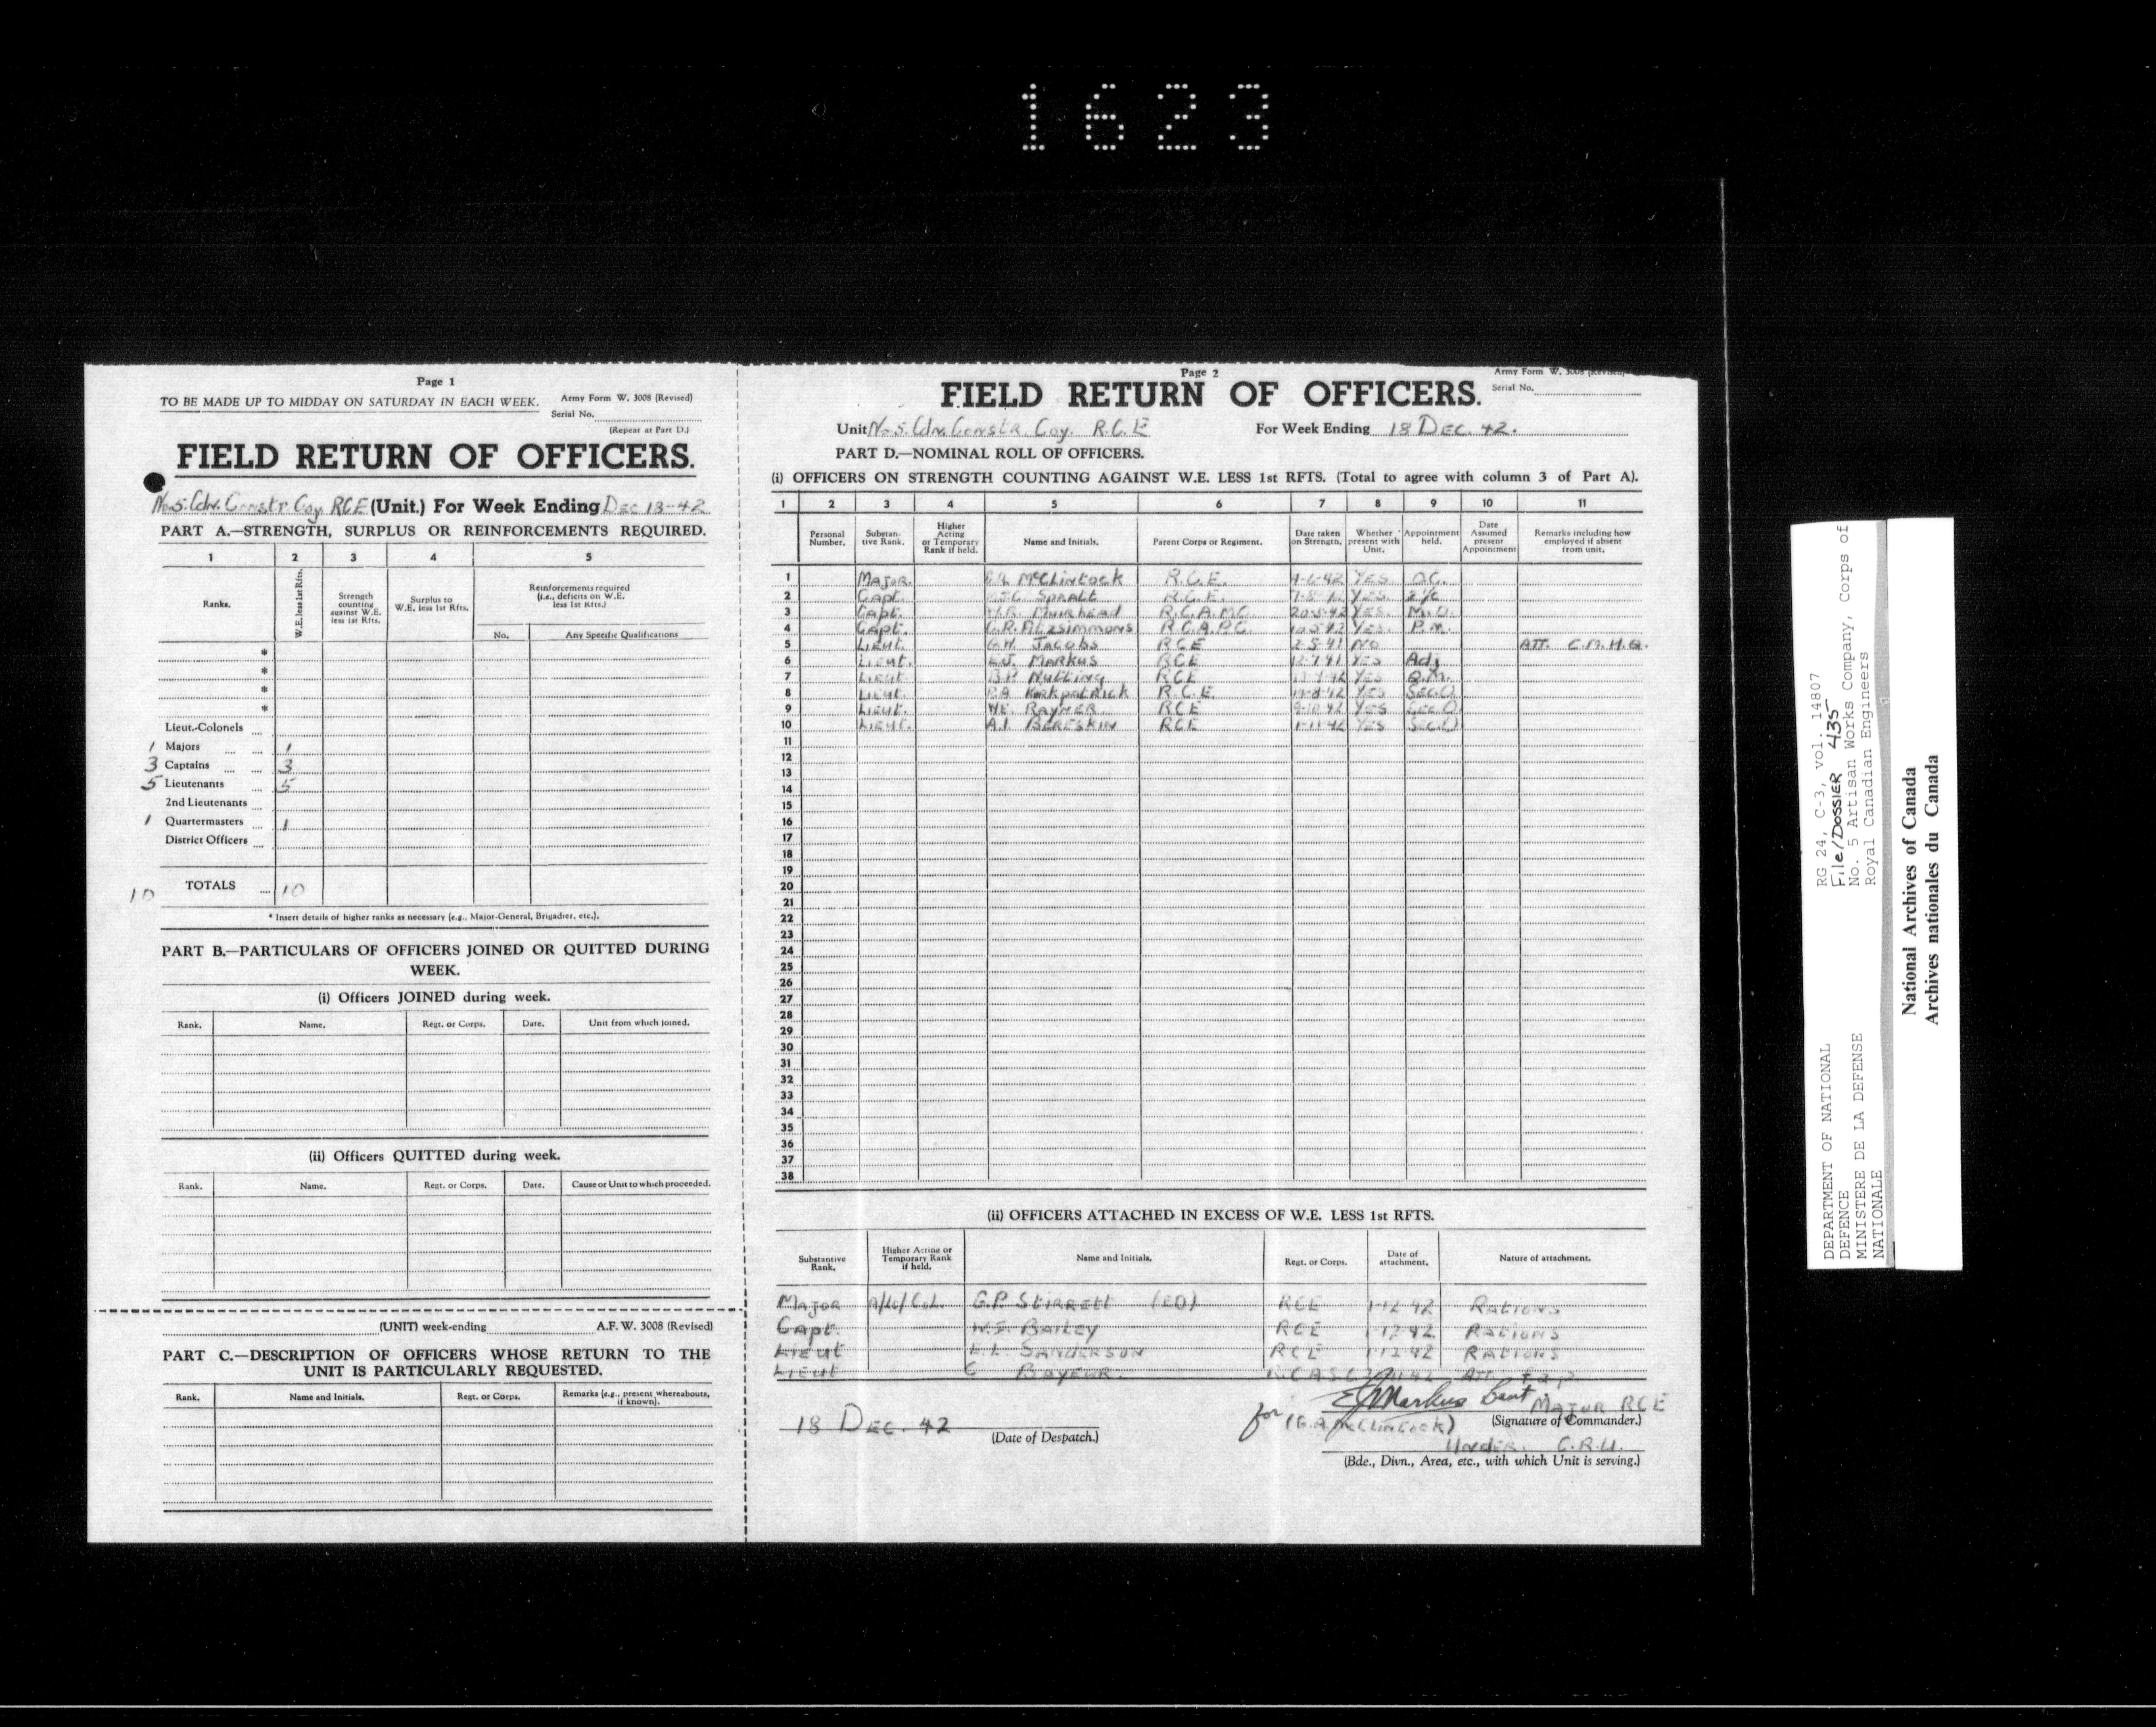 1623
Page 1
TO BE MADE UP TO MIDDAY ON SATURDAY IN EACH WEEK.
Army Form W. 3008 (Revised)
Serial No.
(Repeat at Part D.)
FIELD RETURN OF OFFICERS.
No.5.Cdn.Constr Coy. RCE (Unit.) For Week Ending Dec 18-42
PART A.—STRENGTH, SURPLUS OR REINFORCEMENTS REQUIRED.
1 2 3 4 5
Ranks. W.E. less 1st Rfts. Strength counting against W.E. less 1st Rfts. Surplus to W.E. less 1st Rfts. Reinforcements required (i.e., deficits on W.E. less 1st Rfts.)
No. Any Specific Qualifications
*
*
*
*
Lieut.-Colonels
1 Majors 1
3 Captains 3
5 Lieutenants 5
2nd Lieutenants
1 Quartermasters 1
District Officers
10 TOTALS 10
* Insert details of higher ranks as necessary (e.g., Major-General, Brigadier, etc.).
PART B.—PARTICULARS OF OFFICERS JOINED OR QUITTED DURING
WEEK.
(i) Officers JOINED during week.
Rank. Name. Regt. or Corps. Date. Unit from which joined.
(ii) Officers QUITTED during week.
Rank. Name. Regt. or Corps. Date. Cause or Unit to which proceeded.
(UNIT) week-ending A.F.W. 3008 (Revised)
PART C.—DESCRIPTION OF OFFICERS WHOSE RETURN TO THE
UNIT IS PARTICULARLY REQUESTED.
Rank. Name and Initials. Regt. or Corps. Remarks (e.g., present whereabouts, if known).
Page 2
Army Form W. 3008 (Revised)
Serial No.
FIELD RETURN OF OFFICERS.
Unit No 5. Cdn. Constr. Coy. R.C.E For Week Ending 18 DEC. 42.
PART D.—NOMINAL ROLL OF OFFICERS.
(i) OFFICERS ON STRENGTH COUNTING AGAINST W.E. LESS 1st RFTS. (Total to agree with column 3 of Part A).
1 2 3 4 5 6 7 8 9 10 11
Personal Number. Substantive Rank. Higher Acting or Temporary Rank if held. Name and Initials. Parent Corps or Regiment. Date taken on Strength. Whether present with Unit. Appointment held. Date Assumed present Appointment Remarks including how employed if absent from unit.
1 MAJOR. McClintock R.C.E. YES O.C.
2 Capt. Spratt R.C.E. YES. 2/c
3 Capt. Muirhead R.C.A.M.C. 20-5-42 YES. M.O.
4 Capt. C.R. Fitzsimmons R.C.A.P.C. YES. P.M.
5 Lieut. G.W. JACOBS RCE 2-5-41 NO ATT. C.M.H.Q.
6 Lieut. E.J. MARKUS RCE 12-7-41 YES Adj
7 Lieut. Nutting RCE YES Q.M.
8 Lieut. Kirkpatrick R.C.E. YES SEC.O.
9 Lieut. RAYNER RCE YES SEC.O.
10 Lieut. A.I. BERESKIN RCE 1-11-42 YES SEC.O
11
12
13
14
15
16
17
18
19
20
21
22
23
24
25
26
27
28
29
30
31
32
33
34
35
36
37
38
(ii) OFFICERS ATTACHED IN EXCESS OF W.E. LESS 1st RFTS.
Substantive Rank. Higher Acting or Temporary Rank if held. Name and Initials. Regt. or Corps. Date of attachment. Nature of attachment.
MAJOR A/Lt/Col. G.P. Stirrett (ED) RCE 1-12-42 RATIONS
Capt. W.S. Bailey RCE 1-12-42 RATIONS
Lieut L.L. SANDERSON RCE 1-12-42 RATIONS
Lieut C BAYEUR. R.C.A.S.C ATT.
for EJMarkus Lieut MAJOR RCE
18 DEC. 42 (G.A. McClintock) (Signature of Commander.)
(Date of Despatch.)
Under. C.R.U.
(Bde., Divn., Area, etc., with which Unit is serving.)
RG 24, C-3, vol. 14807
File/DOSSIER 435
No. 5 Artisan Works Company, Corps of
Royal Canadian Engineers
DEPARTMENT OF NATIONAL
DEFENCE
MINISTERE DE LA DEFENSE
NATIONALE
National Archives of Canada
Archives nationales du Canada